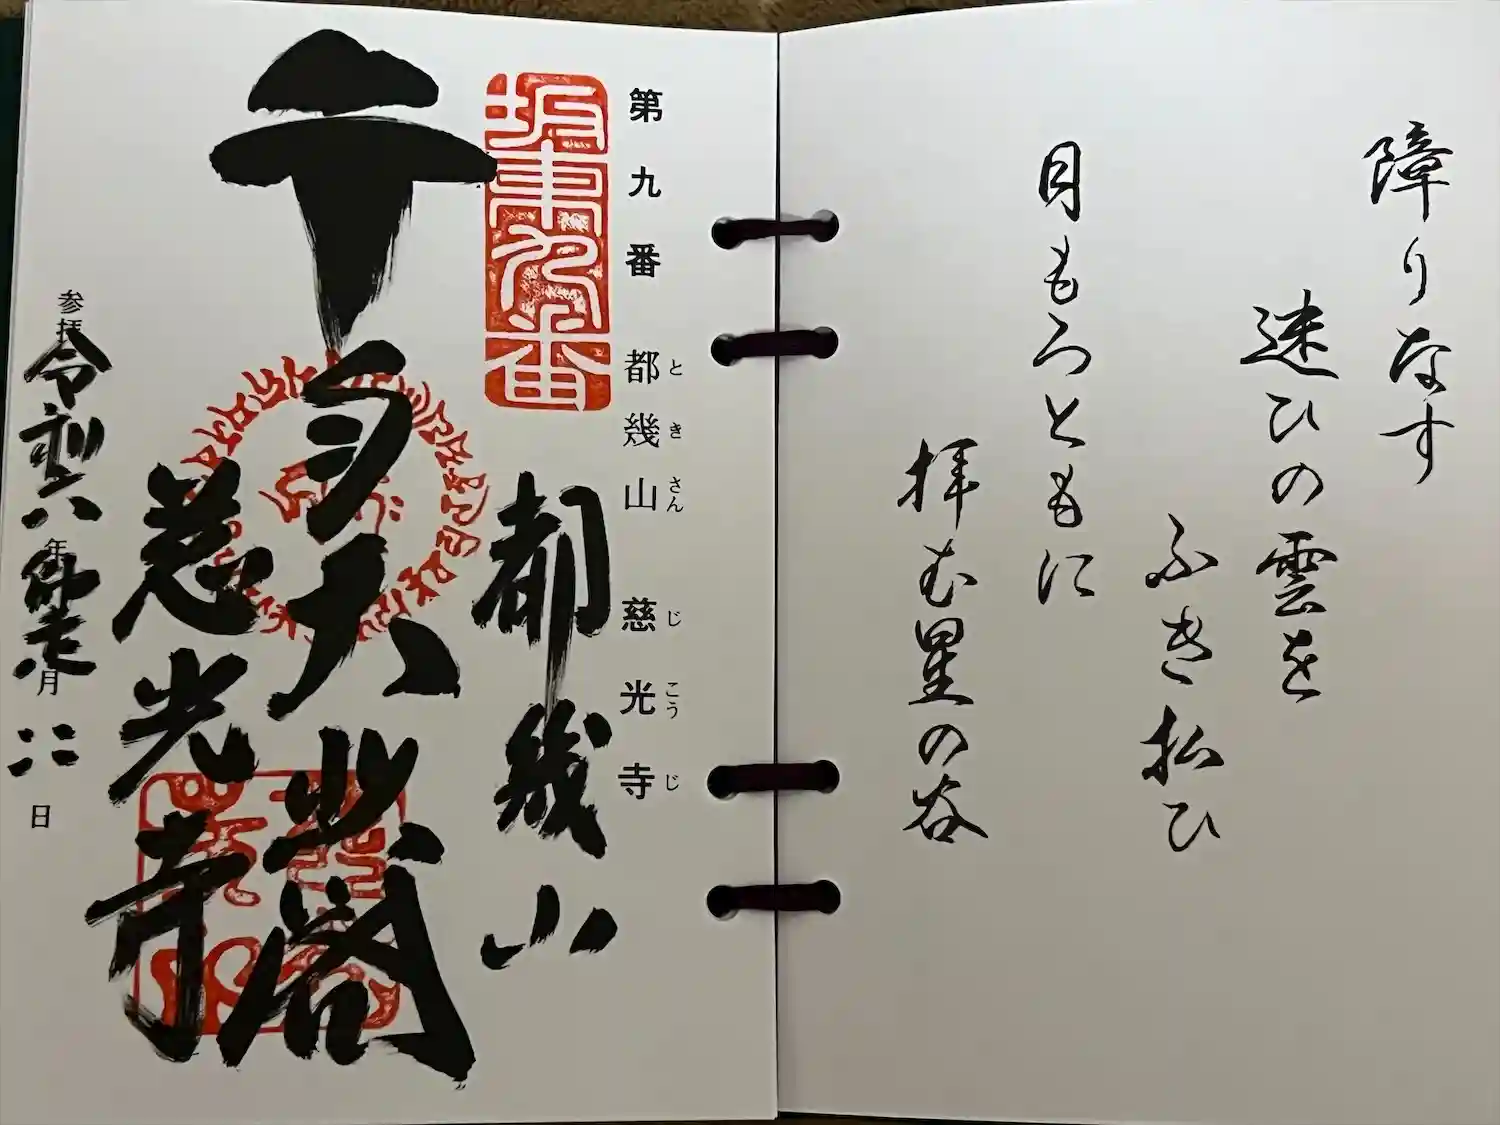 障りなす
迷ひの雲を
ふき払ひ
月もろともに
拝む星の谷
第九番 都幾山 慈光寺
ときさん じこうじ
坂東九番
都幾山
千手大悲閣
慈光寺
参拝 令和六年師走月二二日